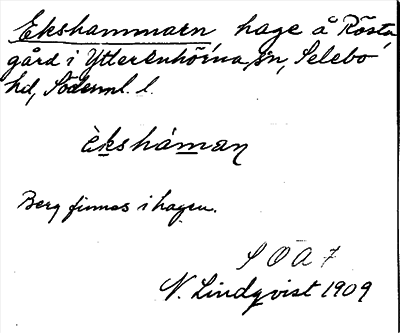 Ekshammarn hage å Rösta
gård i Ytterenhörna sn, Selebo
hd, Söderml. l.
èkshámaṇ
Berg finnes i hagen.
S Ö A 7
N. Lindqvist 1909